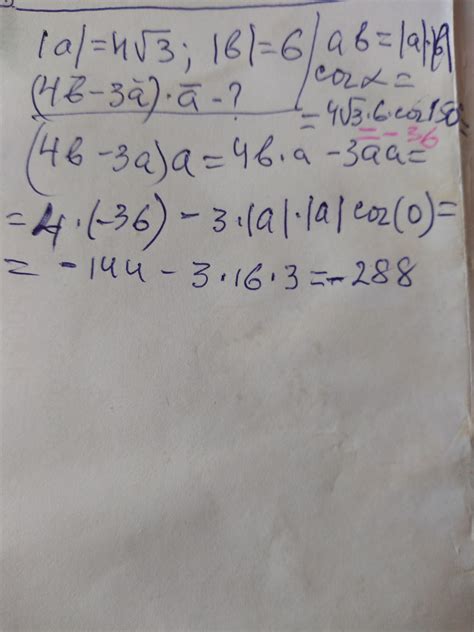 |a|=4√3; |b|=6
ab=|a|·|b|
cosα=
=4√3·6·cos150
=-36
(4b̄-3ā)·ā-?
(4b-3a)a=4b·a-3aa=
=4·(-36)-3·|a|·|a|cos(0)=
=-144-3·16·3=-288